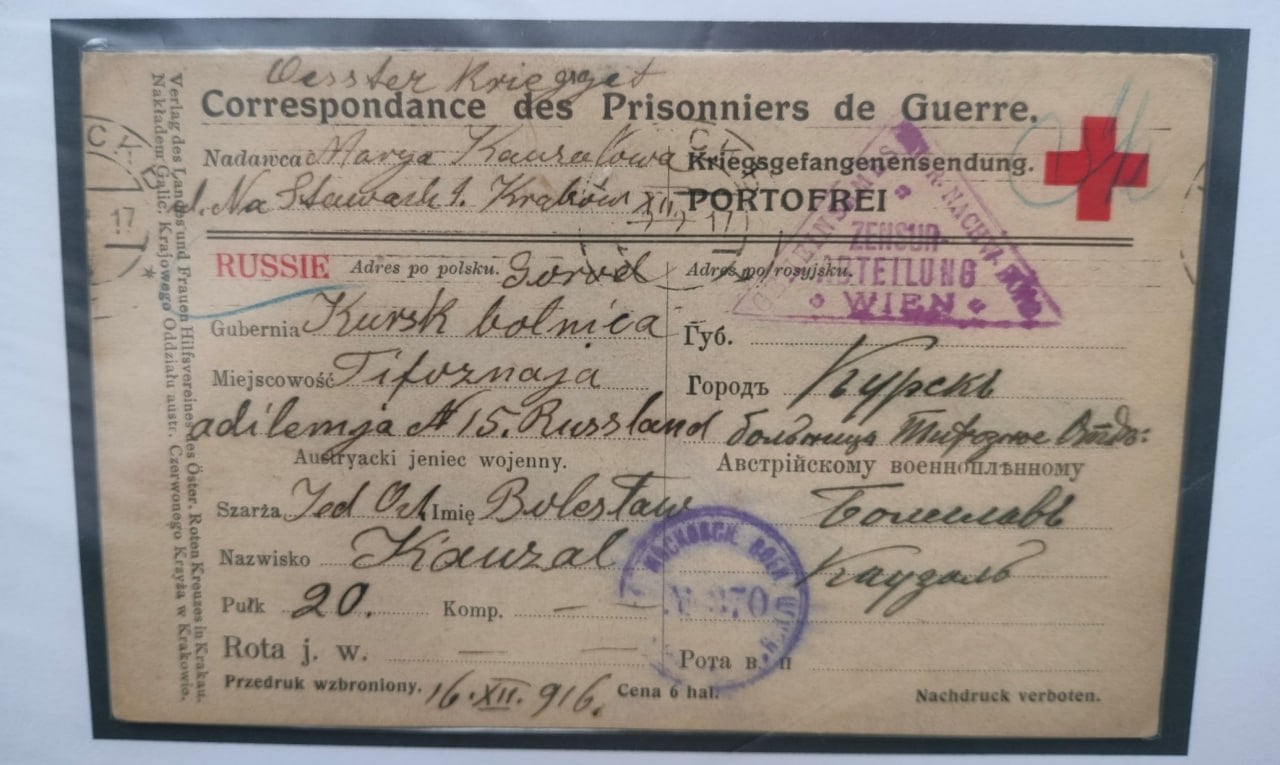 Oesster Kriegget
Correspondance des Prisonniers de Guerre.
Nadawca Marya Kauzalowa
Kriegsgefangenensendung.
ul. Na Stawach 1. Kraków XII
PORTOFREI
ZENSUR-
ABTEILUNG
WIEN
RUSSIE Adres po polsku. Gorod
Adres po rosyjsku.
Gubernia Kursk bolnica
Губ.
Miejscowość Tifoznaja
Городъ Курскъ
adilemja N 15. Russland
больница Тифозное Отдѣ:
Austryacki jeniec wojenny.
Австрійскому военноплѣнному
Szarża Jed Och. Imię Bolesław
Болеславъ
Nazwisko Kauzal
Каузаль
МОСКОВСК. ВОЕН
№ 270
Pułk 20. Komp. — —
Rota j. w. — —
Рота в. п
Przedruk wzbroniony. 16.XII.916. Cena 6 hal.
Nachdruck verboten.
Verlag des Landes und Frauen Hilfsvereines des Öster. Roten Kreuzes in Krakau.
Nakładem Galic. Krajowego Oddziału austr. Czerwonego Krzyża w Krakowie.
17